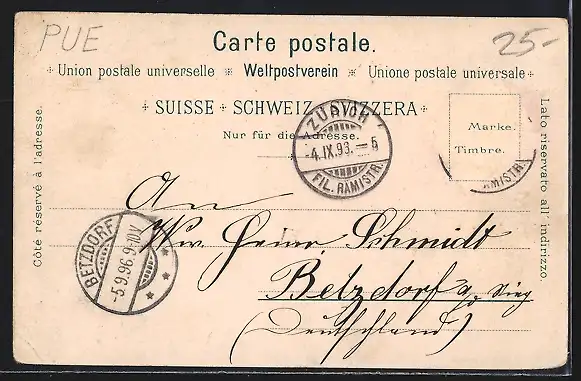 PUE
25-
Carte postale.
Union postale universelle * Weltpostverein * Unione postale universale
SUISSE SCHWEIZ SVIZZERA
Nur für die Adresse.
Côté réservé à l'adresse.
Lato riservato all' indirizzo.
Marke.
Timbre.
ZÜRICH
-4.IX.96.-5
FIL. RÄMISTR.
ÄMISTR.
BETZDORF
-5 9.96.9-10V.
An
Wwe. Heinr. Schmidt
Betzdorf a/d Sieg
(Deutschland)